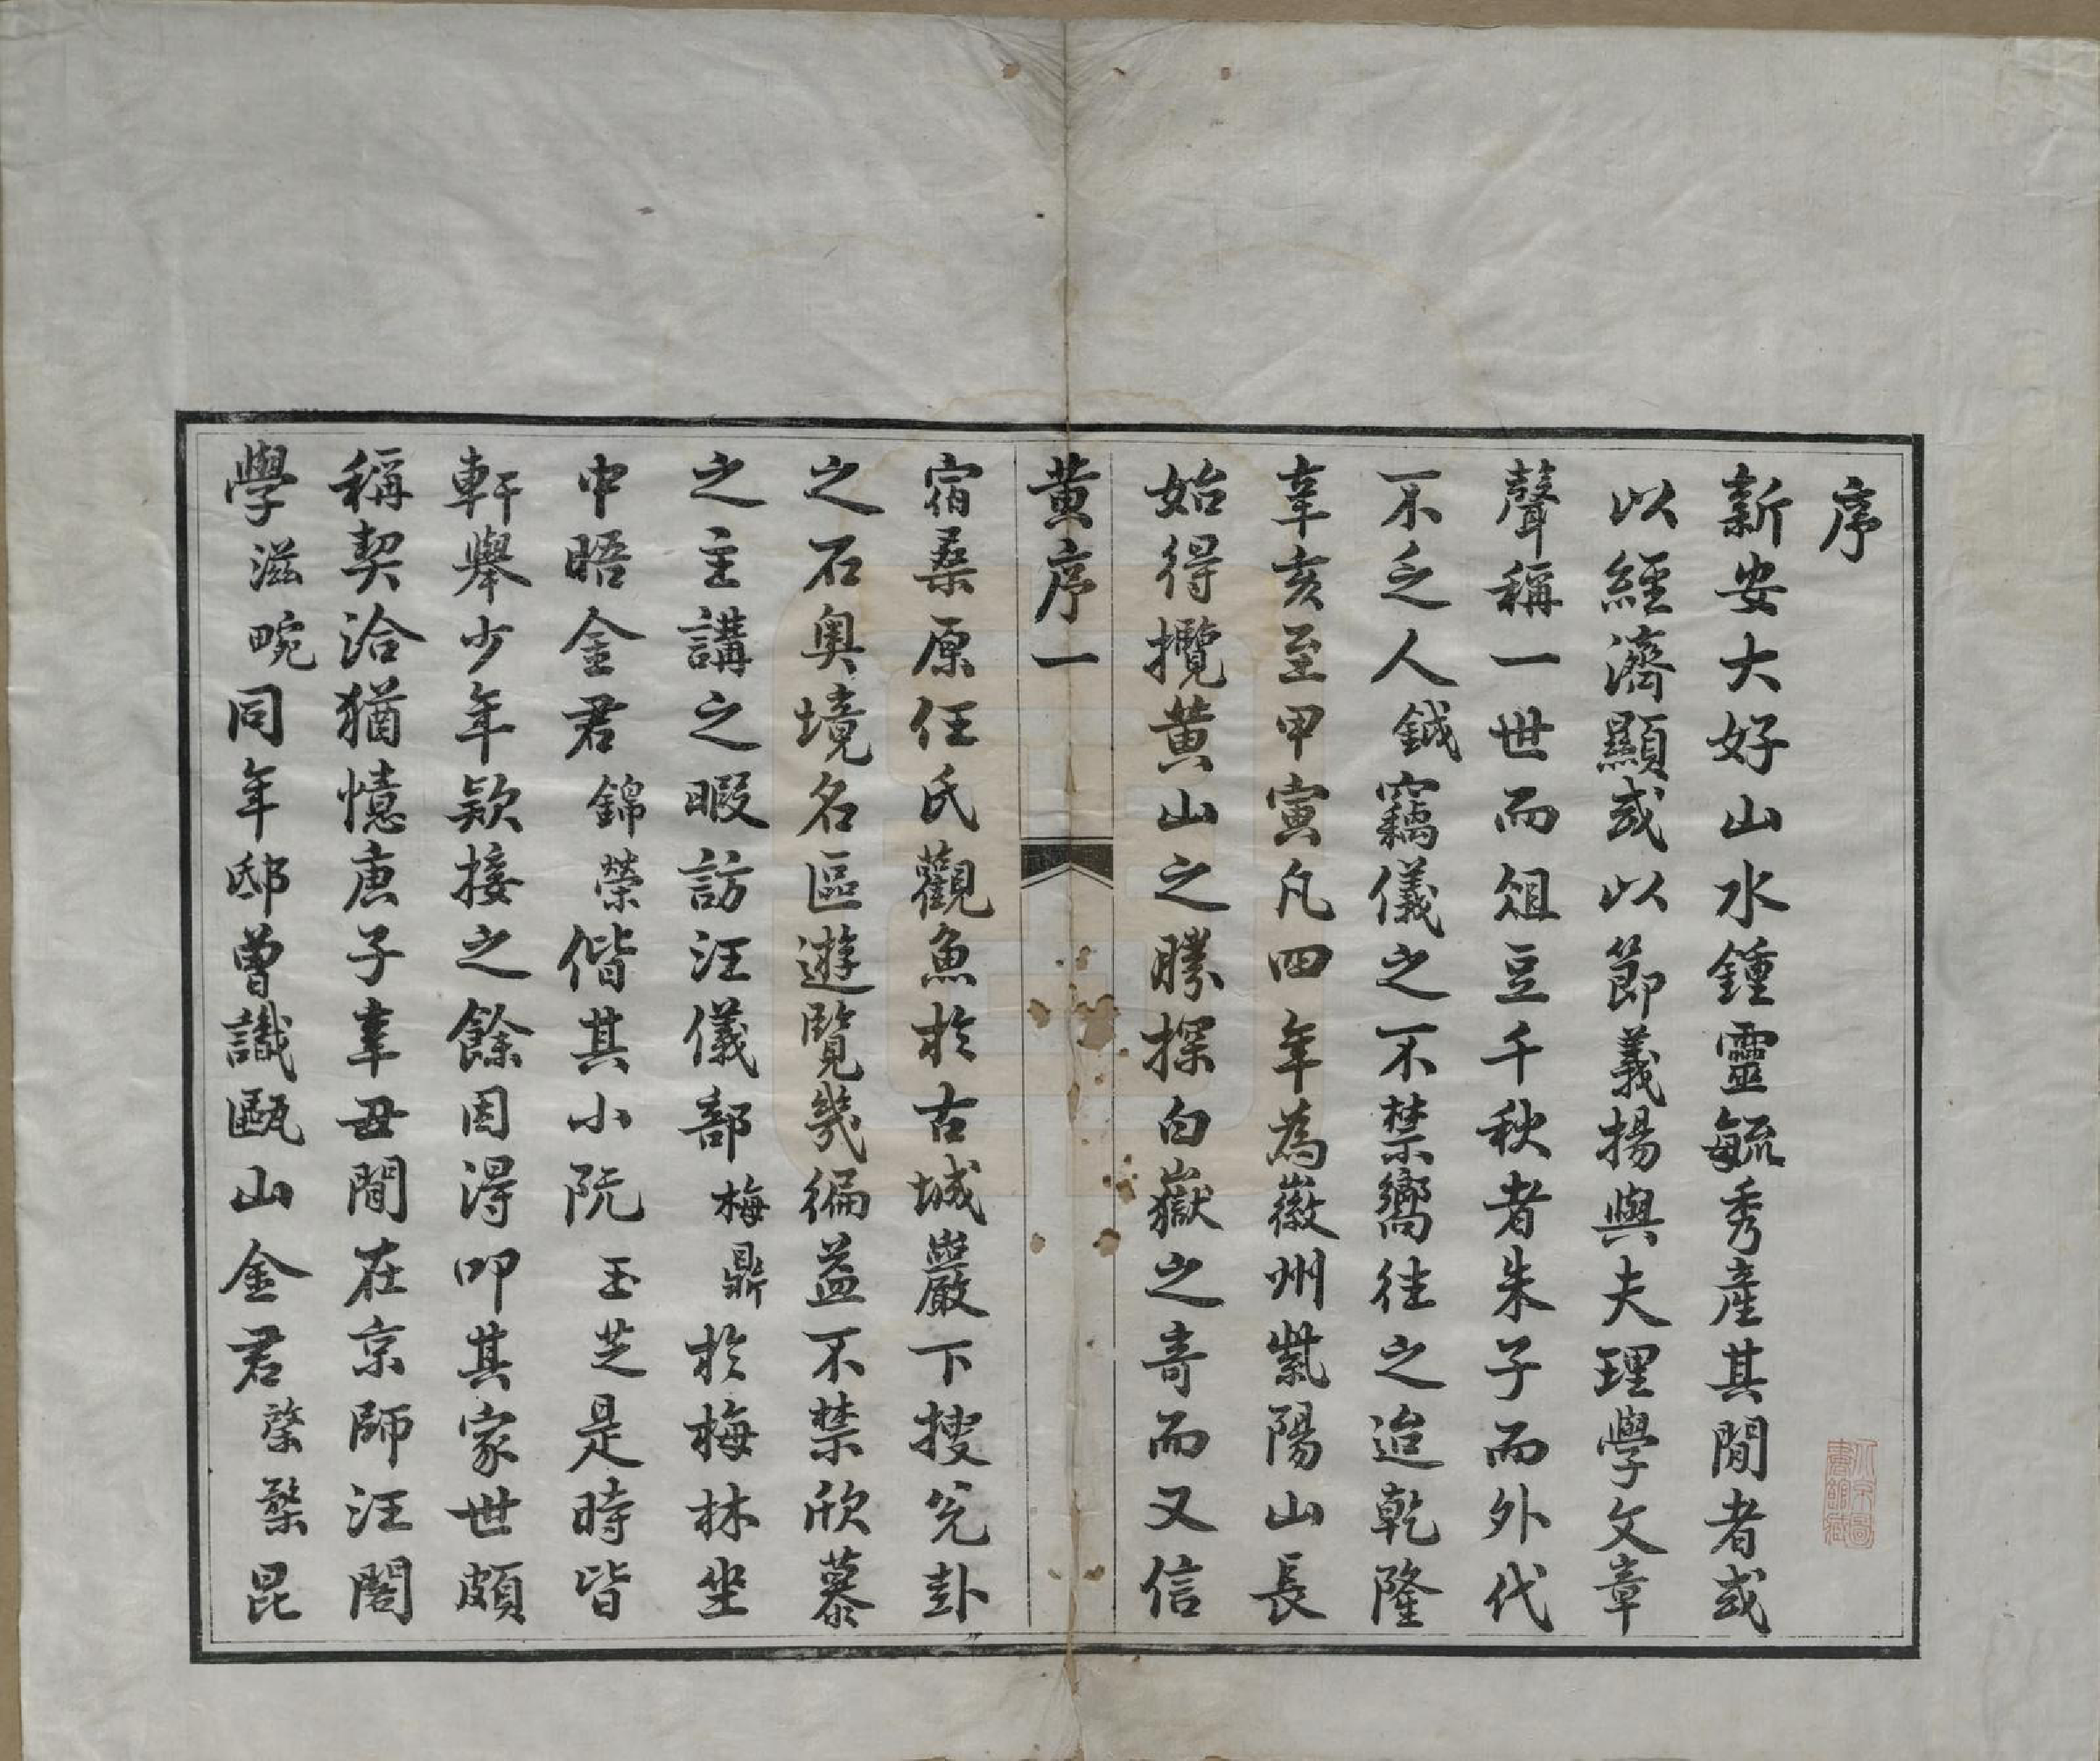 序
新安大好山水鍾靈毓秀產其間者或
以經濟顯或以節義揚與夫理學文章
聲稱一世而俎豆千秋者朱子而外代
不乏人鉞竊儀之不禁嚮往之迨乾隆
辛亥至甲寅凡四年為徽州紫陽山長
始得攬黃山之勝探白嶽之奇而又信
黃序一
宿桑原任氏觀魚於古城巖下搜完卦
之石奧境名區遊覽幾徧益不禁欣慕
之主講之暇訪汪儀部梅鼎於梅林坐
中晤金君錦榮偕其小阮玉芝是時皆
軒舉少年欵接之餘因得叩其家世頗
稱契洽猶憶庚子辛丑間在京師汪閣
學滋畹同年邸曾識甌山金君棨槩昆